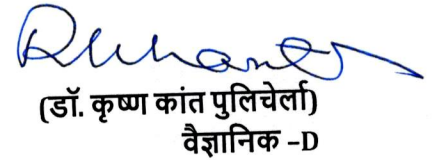 (डॉ. कृष्ण कांत पुलिचेर्ला)
वैज्ञानिक –D